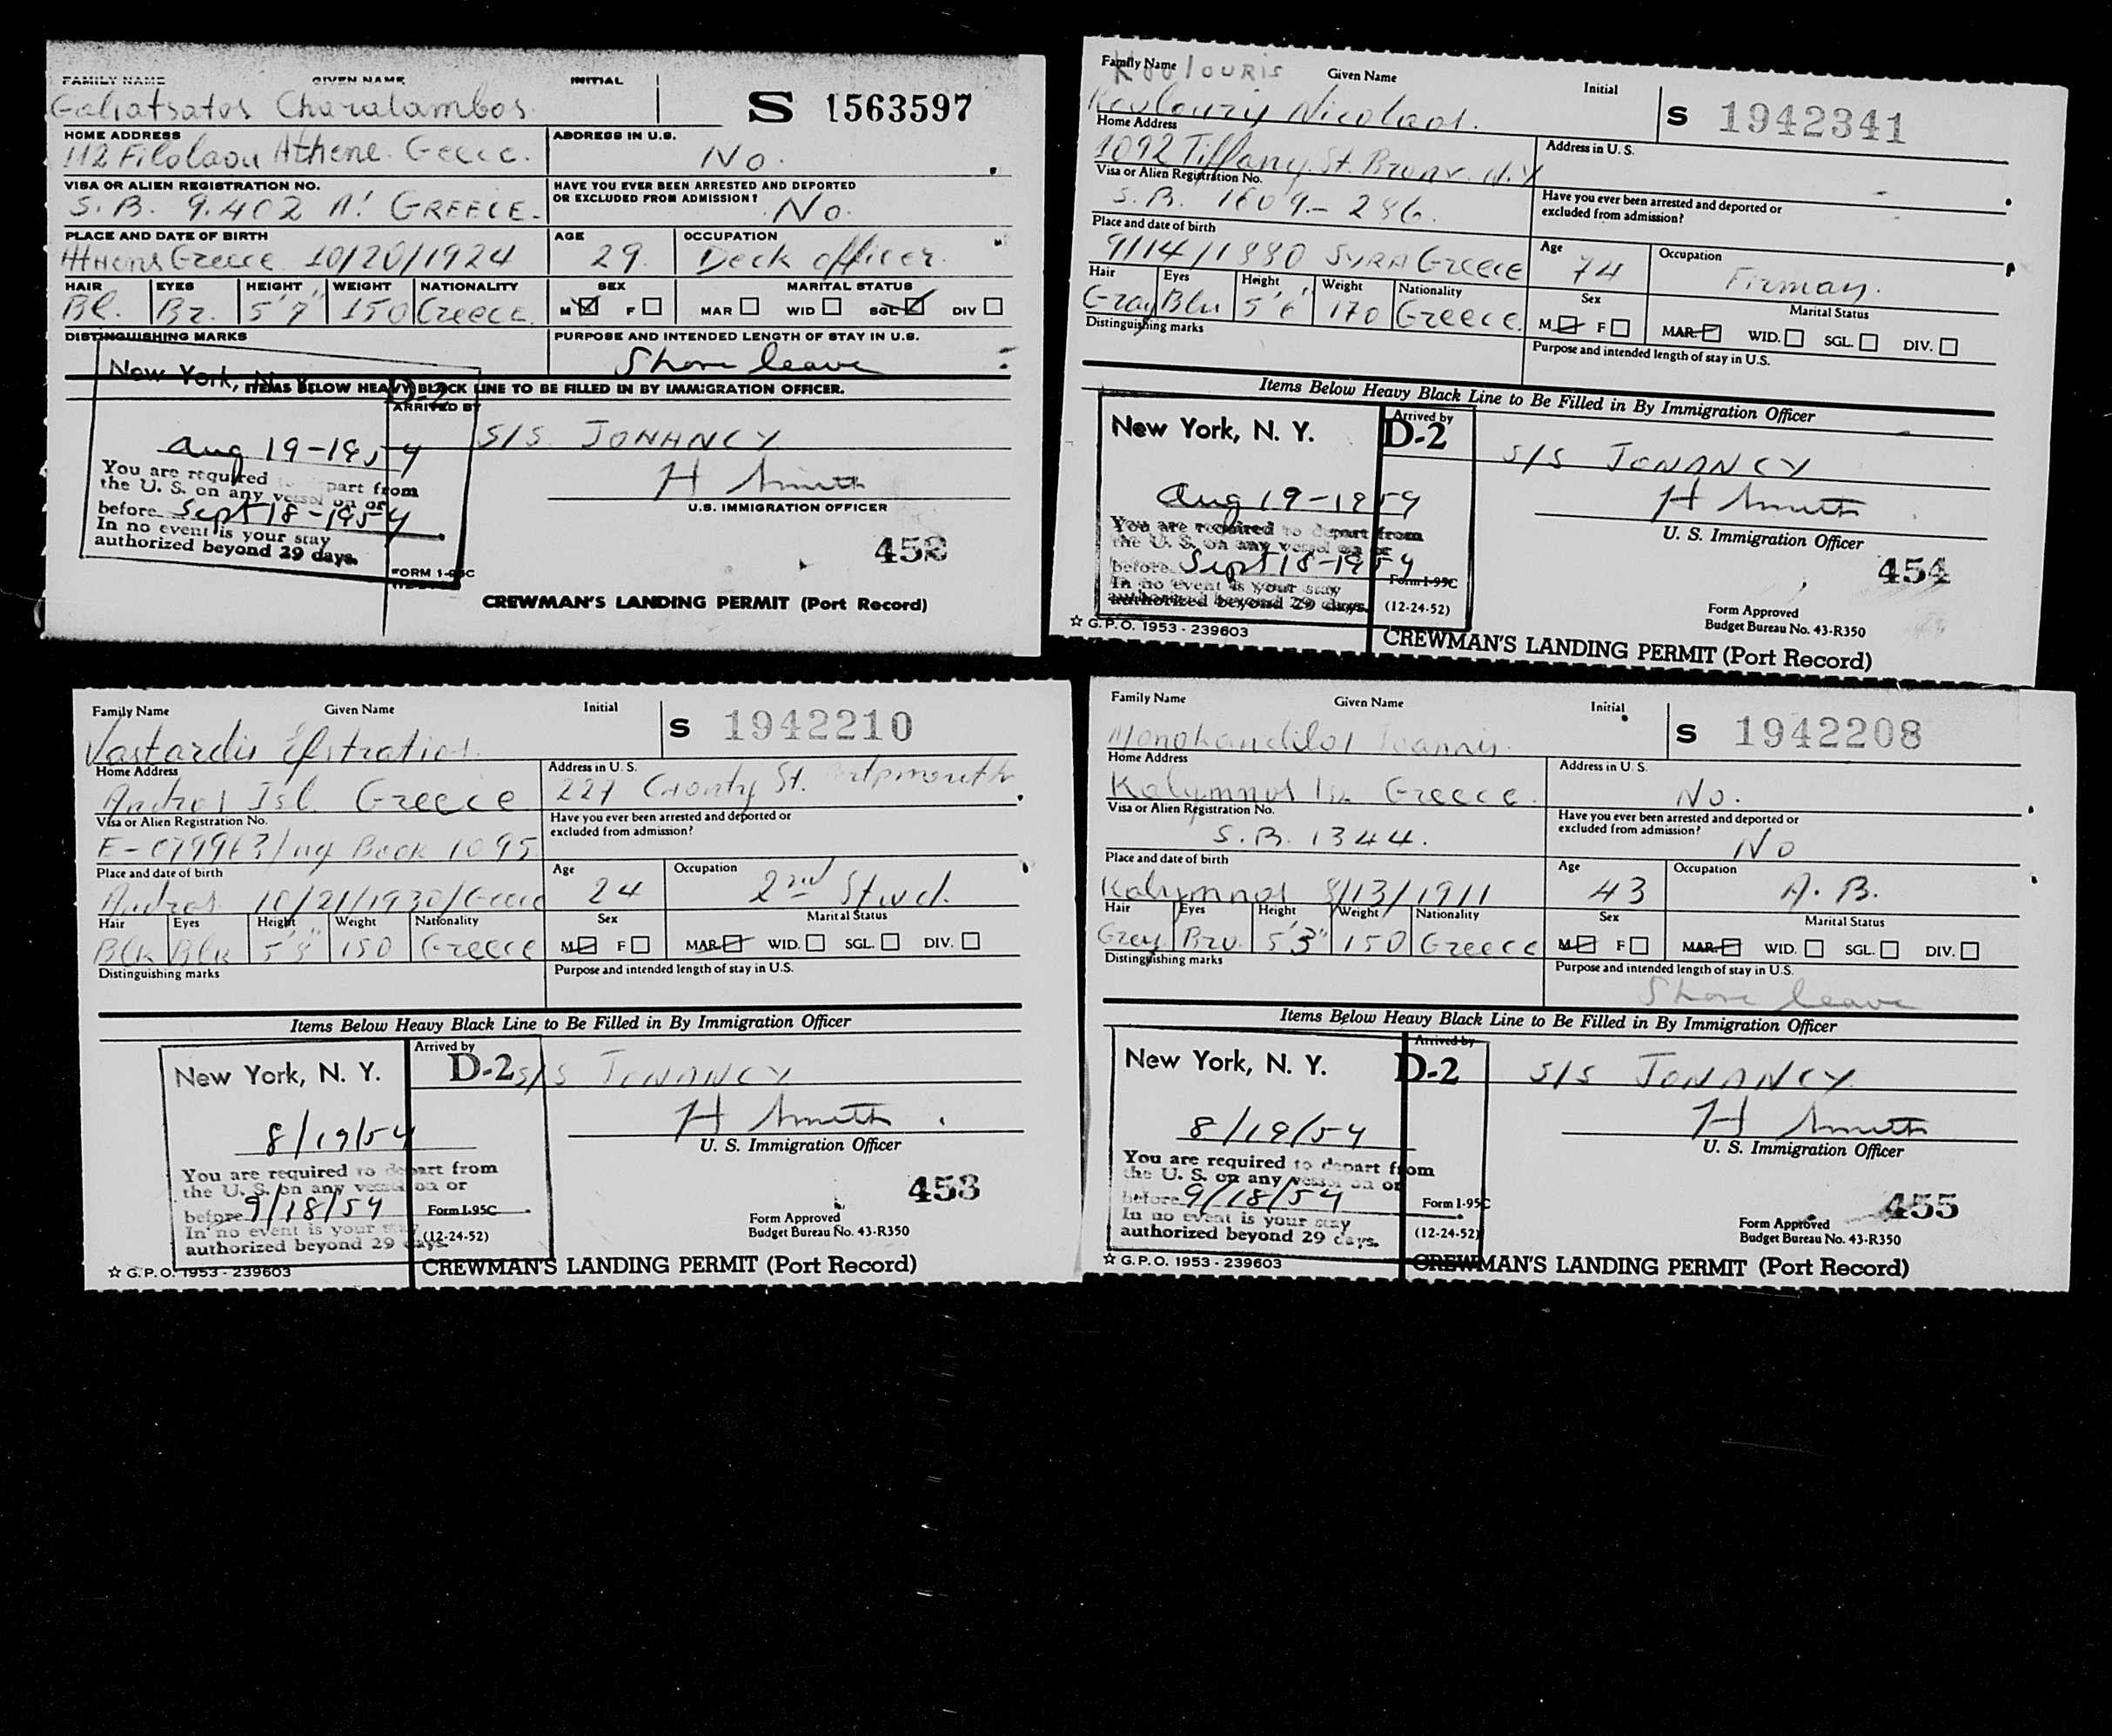 FAMILY NAME GIVEN NAME INITIAL
Galiatsatos Charalambos. S 1563597
HOME ADDRESS ADDRESS IN U.S.
112 Filolaou Athene. Geece. No.
VISA OR ALIEN REGISTRATION NO. HAVE YOU EVER BEEN ARRESTED AND DEPORTED OR EXCLUDED FROM ADMISSION?
S.B. 9.402 A! GREECE. No.
PLACE AND DATE OF BIRTH AGE OCCUPATION
Athens Greece 10/20/1924 29. Deck officer.
HAIR EYES HEIGHT WEIGHT NATIONALITY SEX MARITAL STATUS
Bl. Br. 150 Greece M F MAR WID SGL DIV
DISTINGUISHING MARKS PURPOSE AND INTENDED LENGTH OF STAY IN U.S.
Shore leave
ITEMS BELOW HEAVY BLACK LINE TO BE FILLED IN BY IMMIGRATION OFFICER.
New York, N. D-2
ARRIVED BY
S/S JONANCY
Aug 19-1954
H Smith
U.S. IMMIGRATION OFFICER
You are required to depart from
the U. S. on any vessel on or
before Sept 18-1954
In no event is your stay
authorized beyond 29 days.
FORM I-95C
CREWMAN'S LANDING PERMIT (Port Record)
Family Name Given Name Initial
Koulouris
Nicolaos. S 1942341
Home Address Address in U. S.
1092 Tiffany. St. Bronx. N.Y
Visa or Alien Registration No. Have you ever been arrested and deported or excluded from admission?
S.B. 1609.-286.
Place and date of birth Age Occupation
9/14/1880 SYRA Greece 74 Firman.
Hair Eyes Height Weight Nationality Sex Marital Status
Gray Blu 5'6" 170 Greece. M F MAR. WID. SGL. DIV.
Distinguishing marks Purpose and intended length of stay in U.S.
Items Below Heavy Black Line to Be Filled in By Immigration Officer
New York, N. Y. D-2
Arrived by
S/S JONANCY
Aug 19-1954
H Smith
U. S. Immigration Officer
You are required to depart from
the U. S. on any vessel on or
before Sept 18-1954
In no event is your stay
authorized beyond 29 days.
454
Form I-95C
(12-24-52)
Form Approved
Budget Bureau No. 43-R350
☆ G.P.O. 1953 - 239603
CREWMAN'S LANDING PERMIT (Port Record)
Family Name Given Name Initial
Vastardis Efstratios. S 1942210
Home Address Address in U. S.
Andros Isl. Greece 227 County St.
Visa or Alien Registration No. Have you ever been arrested and deported or excluded from admission?
Book 1095
Place and date of birth Age Occupation
Andros 10/21/1930/Greece 24 2nd Stwd.
Hair Eyes Height Weight Nationality Sex Marital Status
Blk Blu 150 Greece M F MAR. WID. SGL. DIV.
Distinguishing marks Purpose and intended length of stay in U.S.
Items Below Heavy Black Line to Be Filled in By Immigration Officer
New York, N. Y. D-2
Arrived by
S/S JONANCY
8/19/54
H Smith
U. S. Immigration Officer
You are required to depart from
the U. S. on any vessel on or
before 9/18/54
In no event is your stay
authorized beyond 29 days.
453
Form I-95C
(12-24-52)
Form Approved
Budget Bureau No. 43-R350
☆ G.P.O. 1953 - 239603
CREWMAN'S LANDING PERMIT (Port Record)
Family Name Given Name Initial
Monokandilos Ioannis. S 1942208
Home Address Address in U. S.
Kalymnos Is. Greece. No.
Visa or Alien Registration No. Have you ever been arrested and deported or excluded from admission?
S.B. 1344. No
Place and date of birth Age Occupation
Kalymnos 8/13/1911 43 A. B.
Hair Eyes Height Weight Nationality Sex Marital Status
Grey Bro. 5'3" 150 Greece M F MAR. WID. SGL. DIV.
Distinguishing marks Purpose and intended length of stay in U.S.
Shore leave
Items Below Heavy Black Line to Be Filled in By Immigration Officer
New York, N. Y. D-2
Arrived by
S/S JONANCY
8/19/54
H Smith
U. S. Immigration Officer
You are required to depart from
the U. S. on any vessel on or
before 9/18/54
In no event is your stay
authorized beyond 29 days.
455
Form I-95C
(12-24-52)
Form Approved
Budget Bureau No. 43-R350
☆ G.P.O. 1953 - 239603
CREWMAN'S LANDING PERMIT (Port Record)